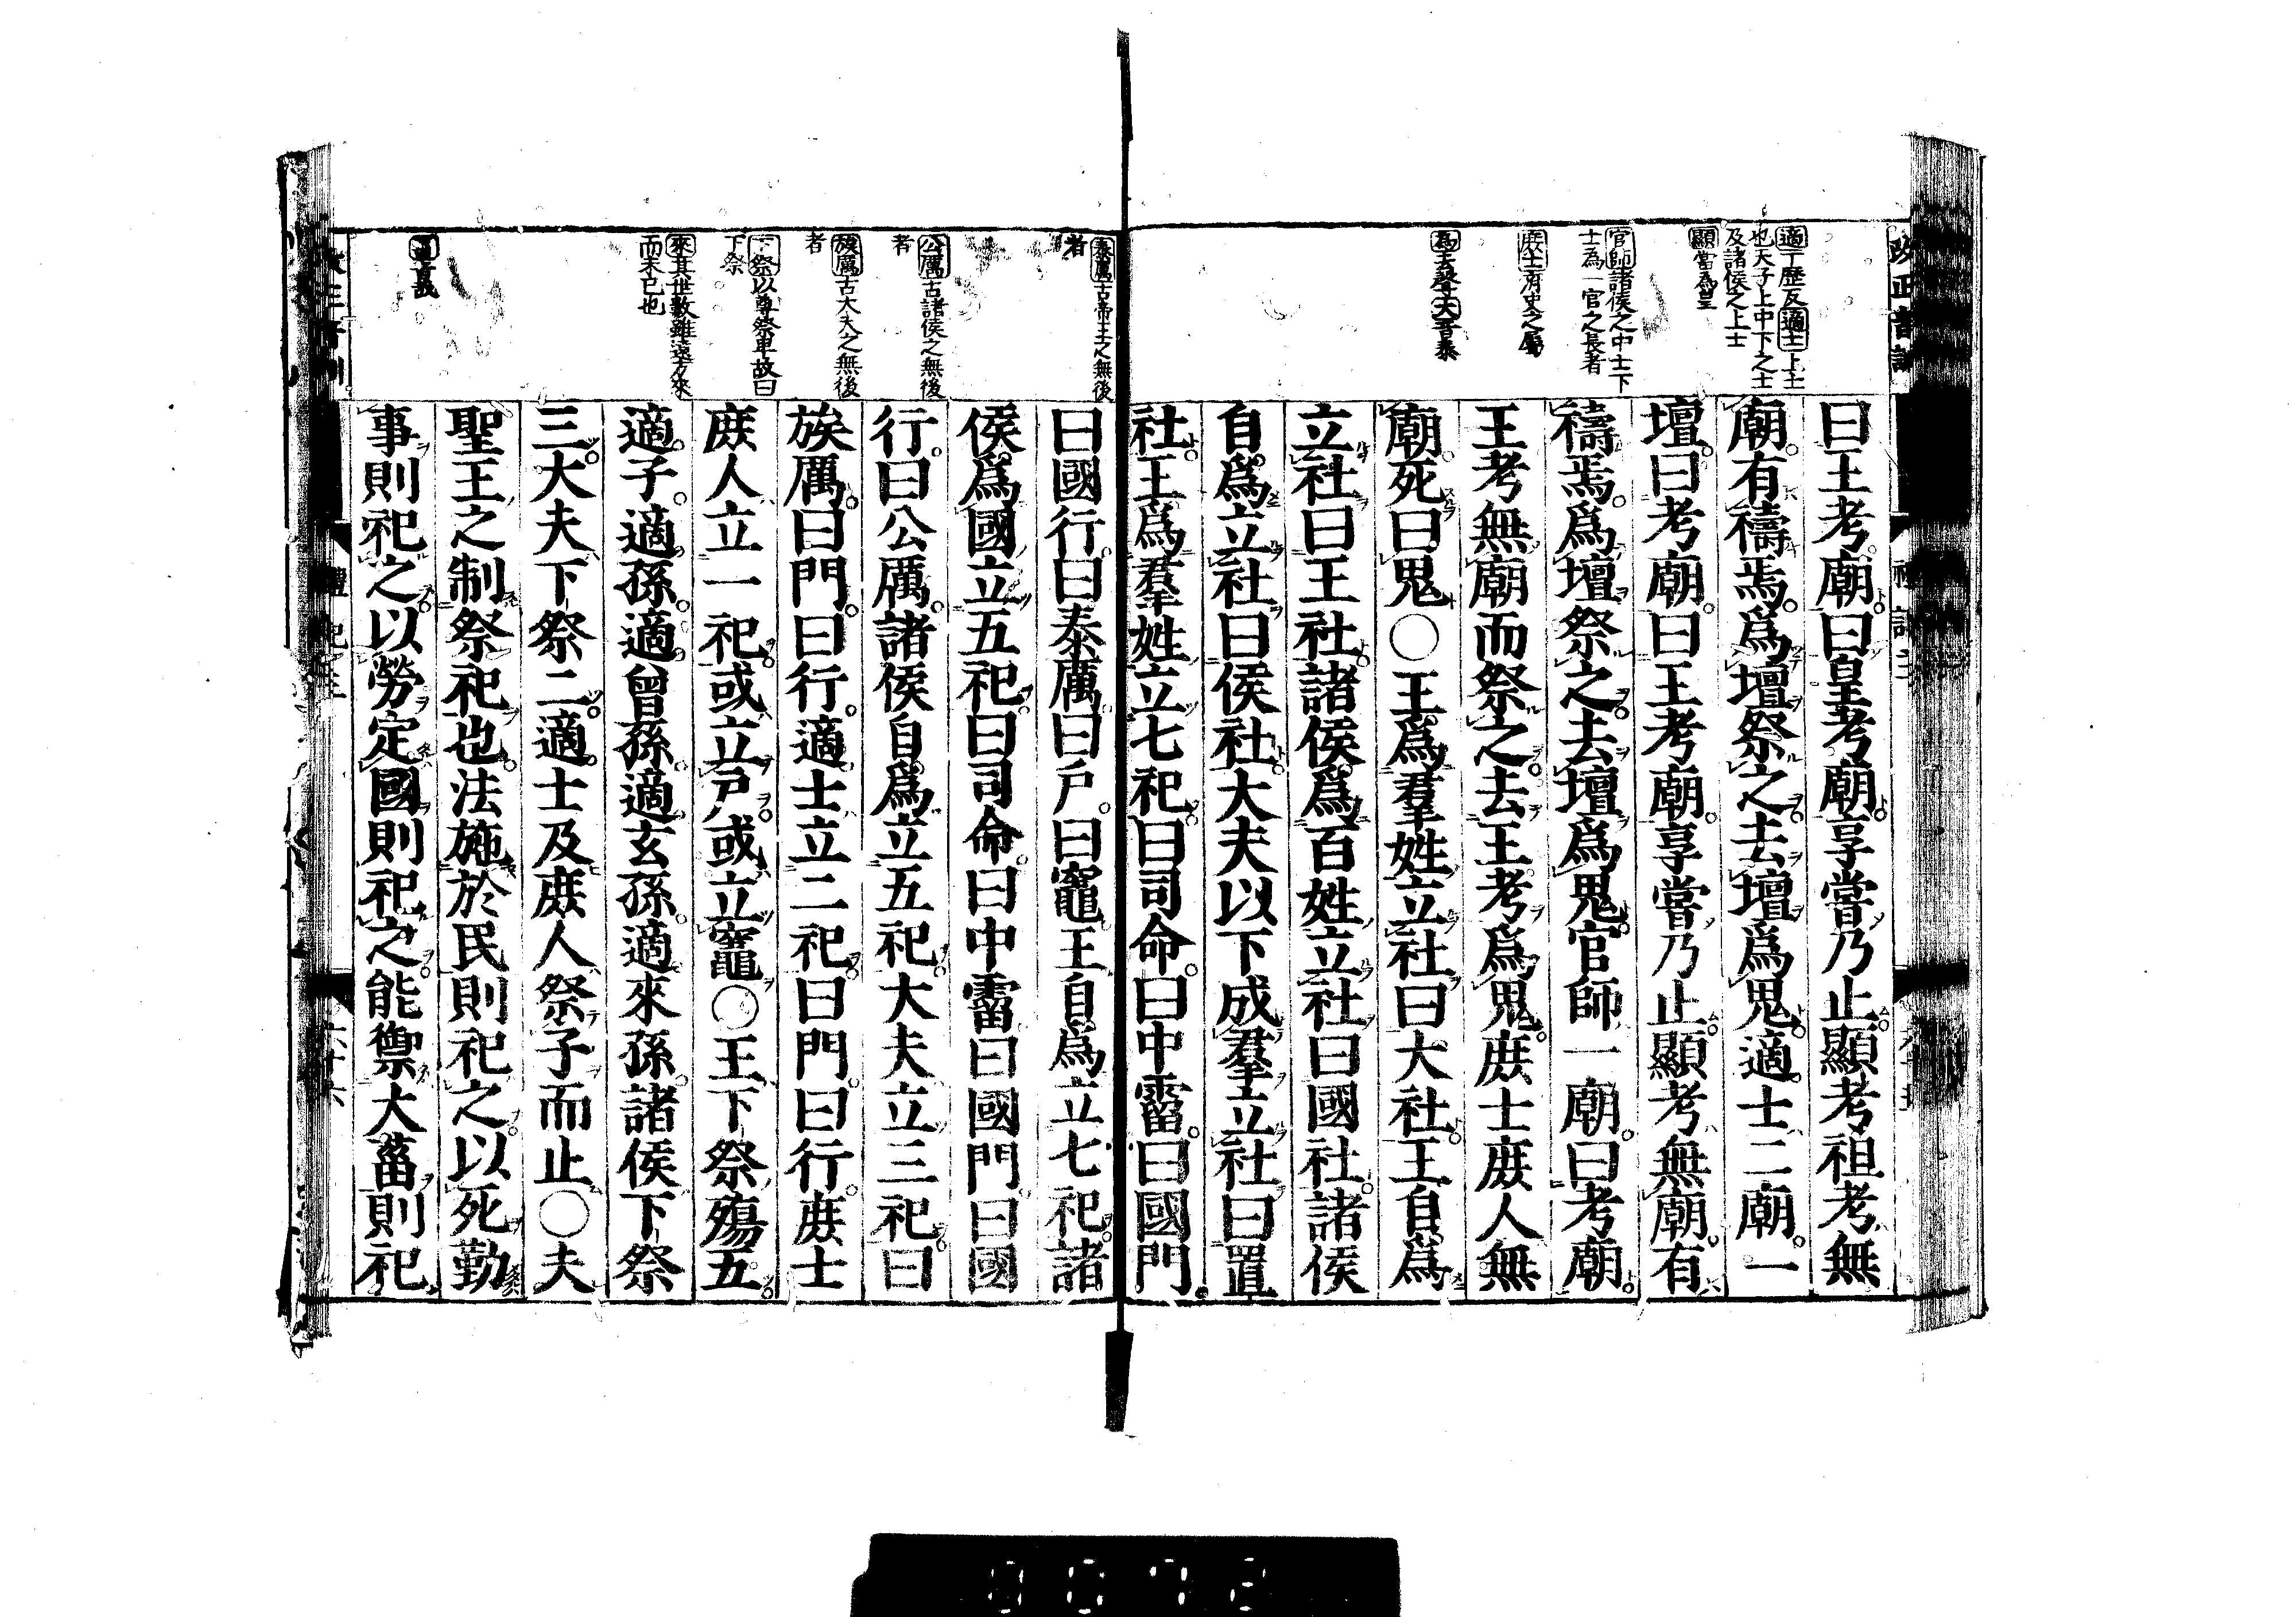 改正音訓
禮記三
適丁歷反適士上士
也天子上中下之士
及諸侯之上士
顯當為皇
官師諸侯之中士下
士為一官之長者
庶士府史之屬
為去聲大音泰
曰王考廟曰皇考廟享嘗乃止顯考祖考無
廟有禱焉爲壇祭之去壇爲鬼適士二廟一
壇曰考廟曰王考廟享嘗乃止顯考無廟有
禱焉爲壇祭之去壇爲鬼官師一廟曰考廟
王考無廟而祭之去王考爲鬼庶士庶人無
廟死曰鬼○王爲羣姓立社曰大社王自爲
立社曰王社諸侯爲百姓立社曰國社諸侯
自爲立社曰侯社大夫以下成羣立社曰置
社王爲羣姓立七祀曰司命曰中霤曰國門
泰厲古帝王之無後
者
公厲古諸侯之無後
者
族厲古大夫之無後
者
下祭以尊祭卑故曰
下祭
來孫其世數雖遠方來
而未已也
曰國行曰泰厲曰戶曰竈王自爲立七祀諸
侯爲國立五祀曰司命曰中霤曰國門曰國
行曰公厲諸侯自爲立五祀大夫立三祀曰
族厲曰門曰行適士立二祀曰門曰行庶士
庶人立一祀或立戶或立竈○王下祭殤五
適子適孫適曾孫適玄孫適來孫諸侯下祭
三大夫下祭二適士及庶人祭子而止○夫
聖王之制祭祀也法施於民則祀之以死勤
事則祀之以勞定國則祀之能禦大菑則祀
禮記三
六十六